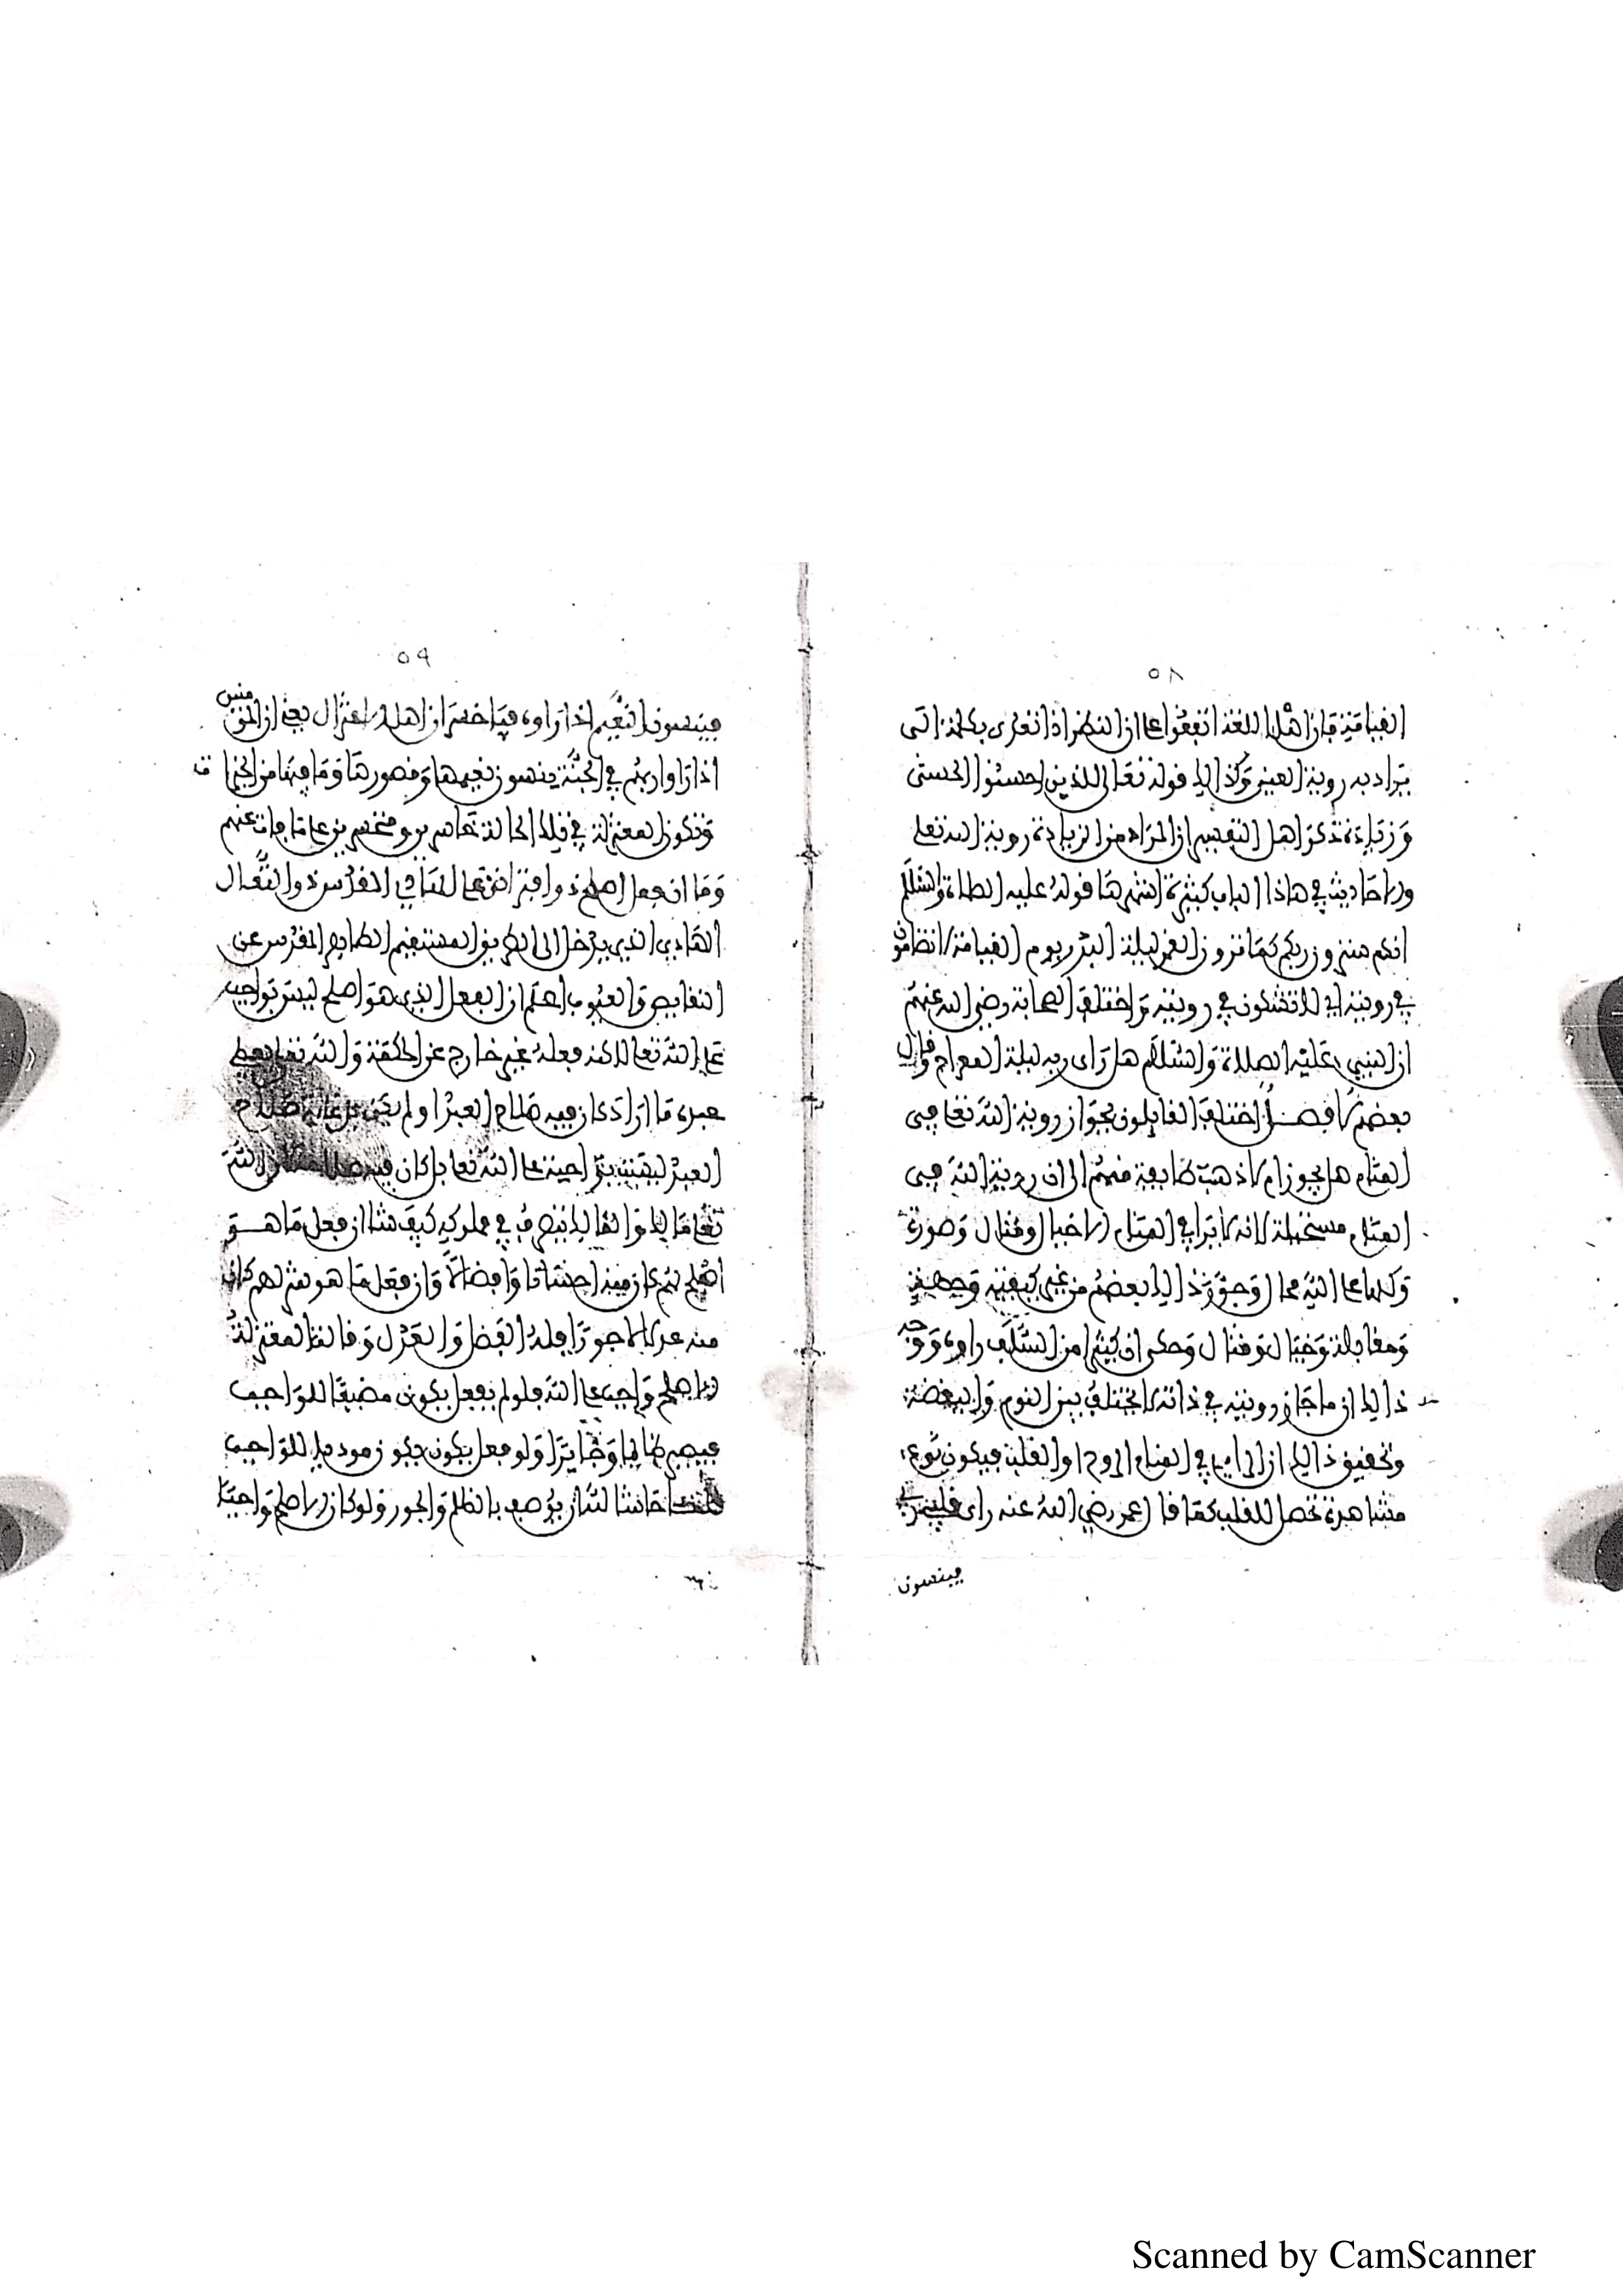 ٥٨
القيامة فإن أهل اللغة اتفقوا على أن النظر إذا تعدى بكلمة إلى
يراد به روية العين وكذالك قوله تعالى للذين أحسنوا الحسنى
وزيادة ذكر أهل التفسير أن المراد من الزيادة روية الله تعلى
والأحاديث في هاذا الباب كثيرة أشهرها قوله عليه الصلاة والسلم
انكم سترون ربكم كما ترون القمر ليلة البدر يوم القيامة لا تضامون
في رويته اي لا تشكون في رويته واختلف الصحابة رضي الله عنهم
ان النبي عليه الصلاة والسلام هل راى ربه ليلة المعراج وقال
بعضهم لا فصل اختلف القايلون بجواز روية الله تعا في
المنام هل يجوز ام لا ذهب طايفة منهم الى ان روية الله في
المنام مستحيلة لانه لا يرا في المنام الا خيال ومثال وصورة
وكلها على الله محال وجوز ذالك بعضهم من غير كيفية وجهة
ومقابلة وخيال ومثال وحكي ان كثيرا من السلف راوه ووجه
ذالك ان ما جاز رويته في ذاته لا يختلف بين النوم واليقضة
وتحقيق ذالك ان الراءي في المنام الروح او القلب فيكون نوع
مشاهدة تحصل للقلب كما قال عمر رضي الله عنه راى قلبي ربي
فينسون
٥٩
فينسون النعيم اذا راوه فيا خسران اهل الاعتزال يعني ان المؤمنين
اذا راوا ربهم في الجنة ينسون نعيمها وقصورها وما فيها من الخيرات
وتكون المعتزلة في تلك الحالة خاسرين ومتحسرين على ما فات عنهم
وما ان فعل اصلح ذو افتراض على الهادي المقدس ذو التعال
الهادي الذي يدخل الى الطريق المستقيم الطاهر المقدس عن
النقايص والعيوب اعلم ان الفعل الذي هو اصلح ليس بواجب
على الله تعا لاكنه فعله غير خارج عن الحكمة والله تعا يعطي
عبده ما اراد كان فيه صلاح العبد او لم يكن
العبد ليس بواجب على الله تعا بل كان الله
تعا مالك والمالك يتصرف في مملوكه كيف شا ان فعل ما هو
اصلح لهم كان منه احسانا وافضالا وان فعل ما هو شر لهم كان
منه عدلا لا جورا فله الفضل والعدل وقالت المعتزلة
الاصلح واجب على الله فلو لم يفعل يكون مضيقا للواجب
فيصير ظالما وجايرا ولو فعل يكون يكون موديا للواجب
حاشا لله ان يوصف بالظلم والجور ولو كان الاصلح واجبا
Scanned by CamScanner